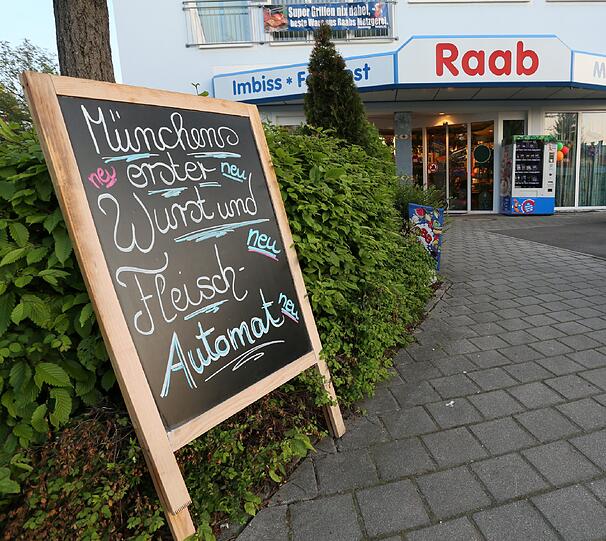 Super Grillen nix dabei,
beste Ware aus Raabs Metzgerei
Imbiss *
Raab
M
Münchens
neu erster neu
Wurst und
neu
Fleisch-
neu
Automat